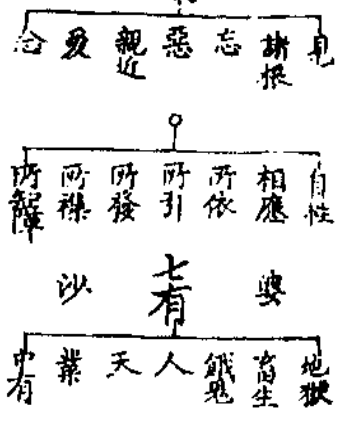 見 忘 惡 親近 愛
自性 相應 所依 所引 所發 所襍 所知障
婆 七有 沙
地獄 畜生 餓鬼 人 天 業 中有